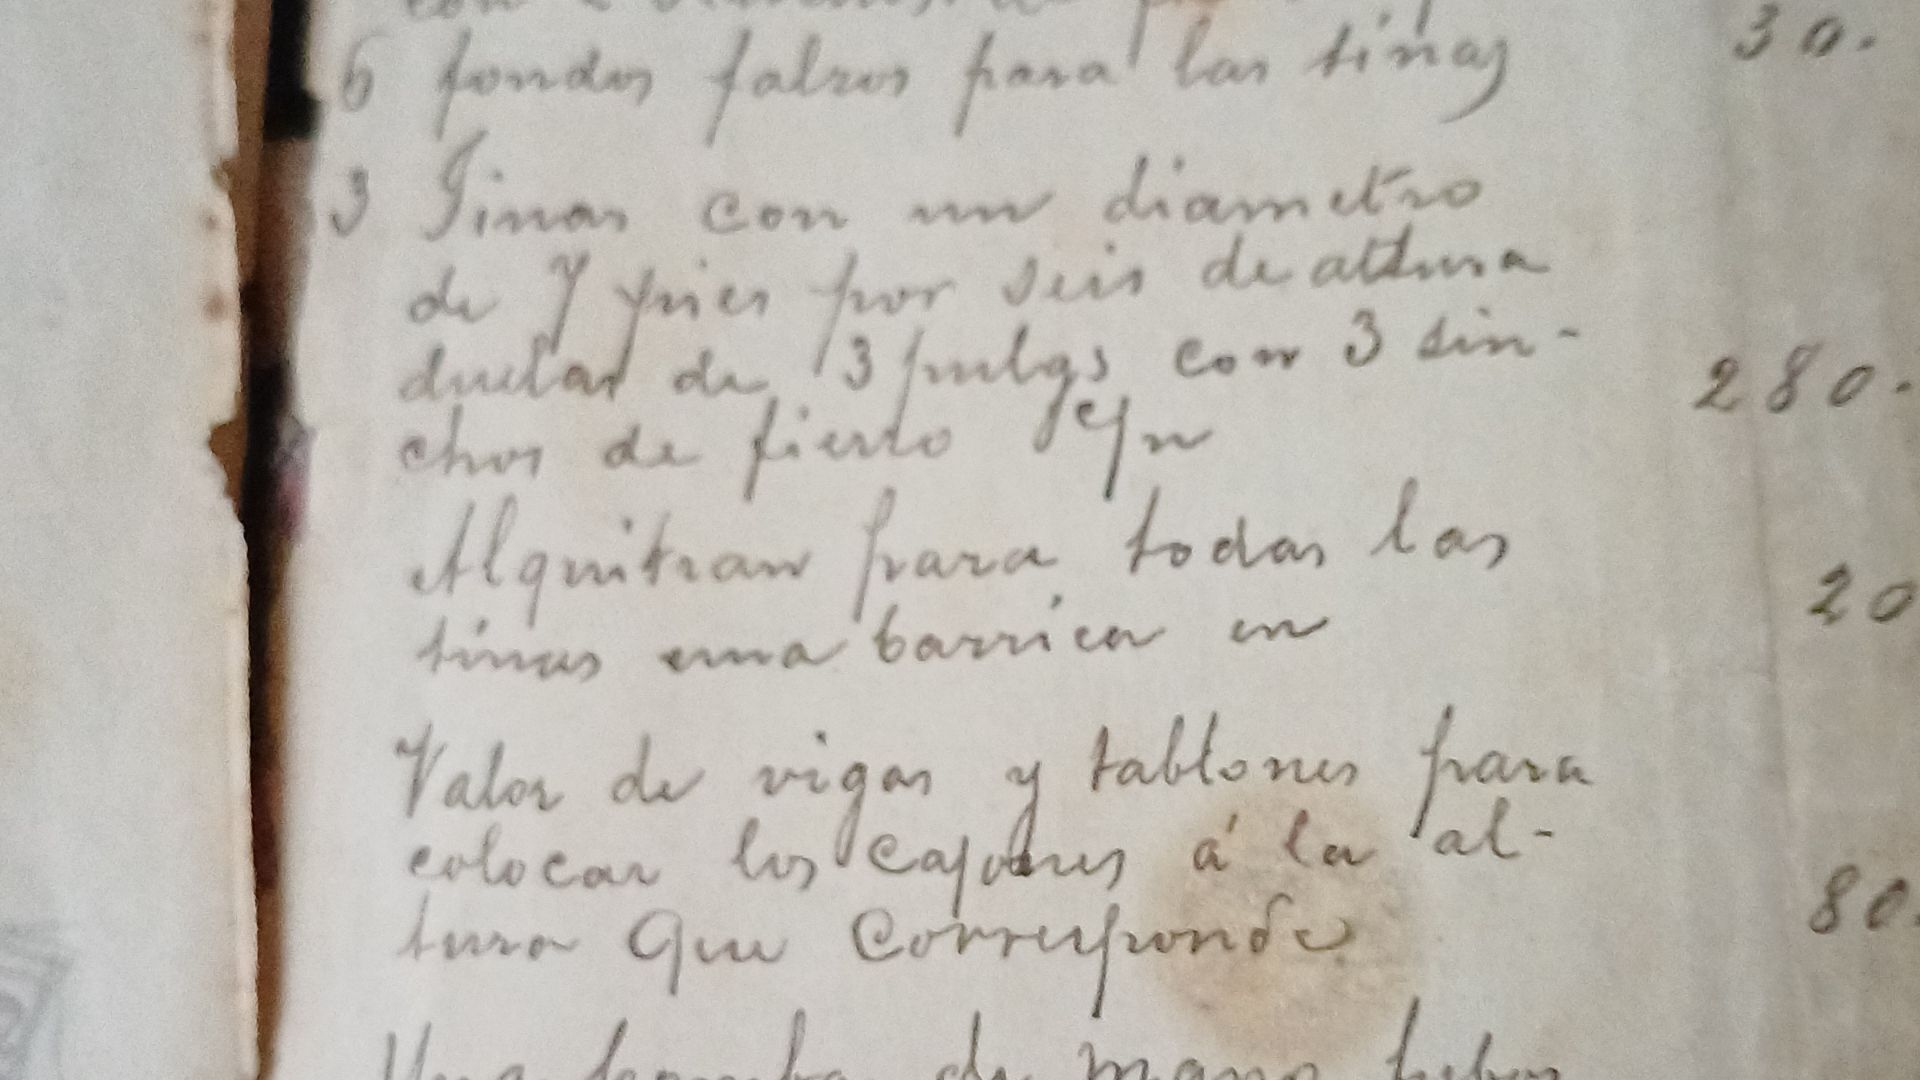 6 fondos falsos para las tinas 30.
3 Tinas con un diametro
de 7 pies por seis de altura
duelas de 3 pulgs con 3 sin-
chos de fierro c/n 280.
Alquitran para todas las
tinas una barrica en 20
Valor de vigas y tablones para
colocar los cajones á la al-
tura que corresponde 80.
Una bomba de mano